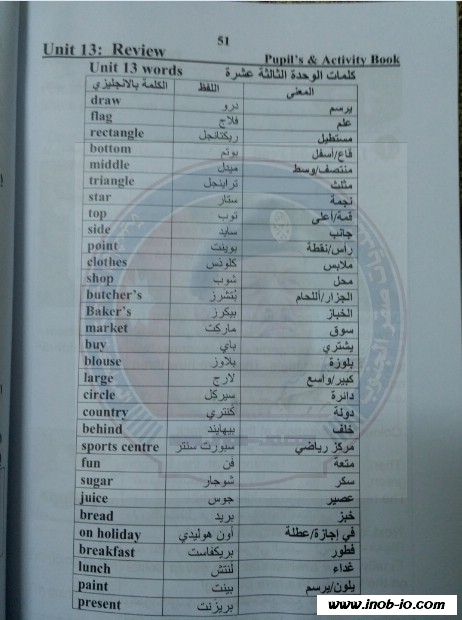 51
Unit 13: Review Pupil's & Activity Book
Unit 13 words كلمات الوحدة الثالثة عشرة
الكلمة بالانجليزي اللفظ المعنى
draw درو يرسم
flag فلاج علم
rectangle ريكتانجل مستطيل
bottom بوتم قاع/أسفل
middle ميدل منتصف/وسط
triangle تراينجل مثلث
star ستار نجمة
top توب قمة/أعلى
side سايد جانب
point بوينت رأس/نقطة
clothes كلوذس ملابس
shop شوب محل
butcher's بُتشرز الجزار/اللحام
Baker's بيكرز الخباز
market ماركت سوق
buy باي يشتري
blouse بلاوز بلوزة
large لارج كبير/واسع
circle سيركل دائرة
country كنتري دولة
behind بيهايند خلف
sports centre سبورت سنتر مركز رياضي
fun فن متعة
sugar شوجار سكر
juice جوس عصير
bread بريد خبز
on holiday أون هوليدي في إجازة/عطلة
breakfast بريكفاست فطور
lunch لنتش غداء
paint بينت يلون/يرسم
present بريزنت
www.inob-io.com